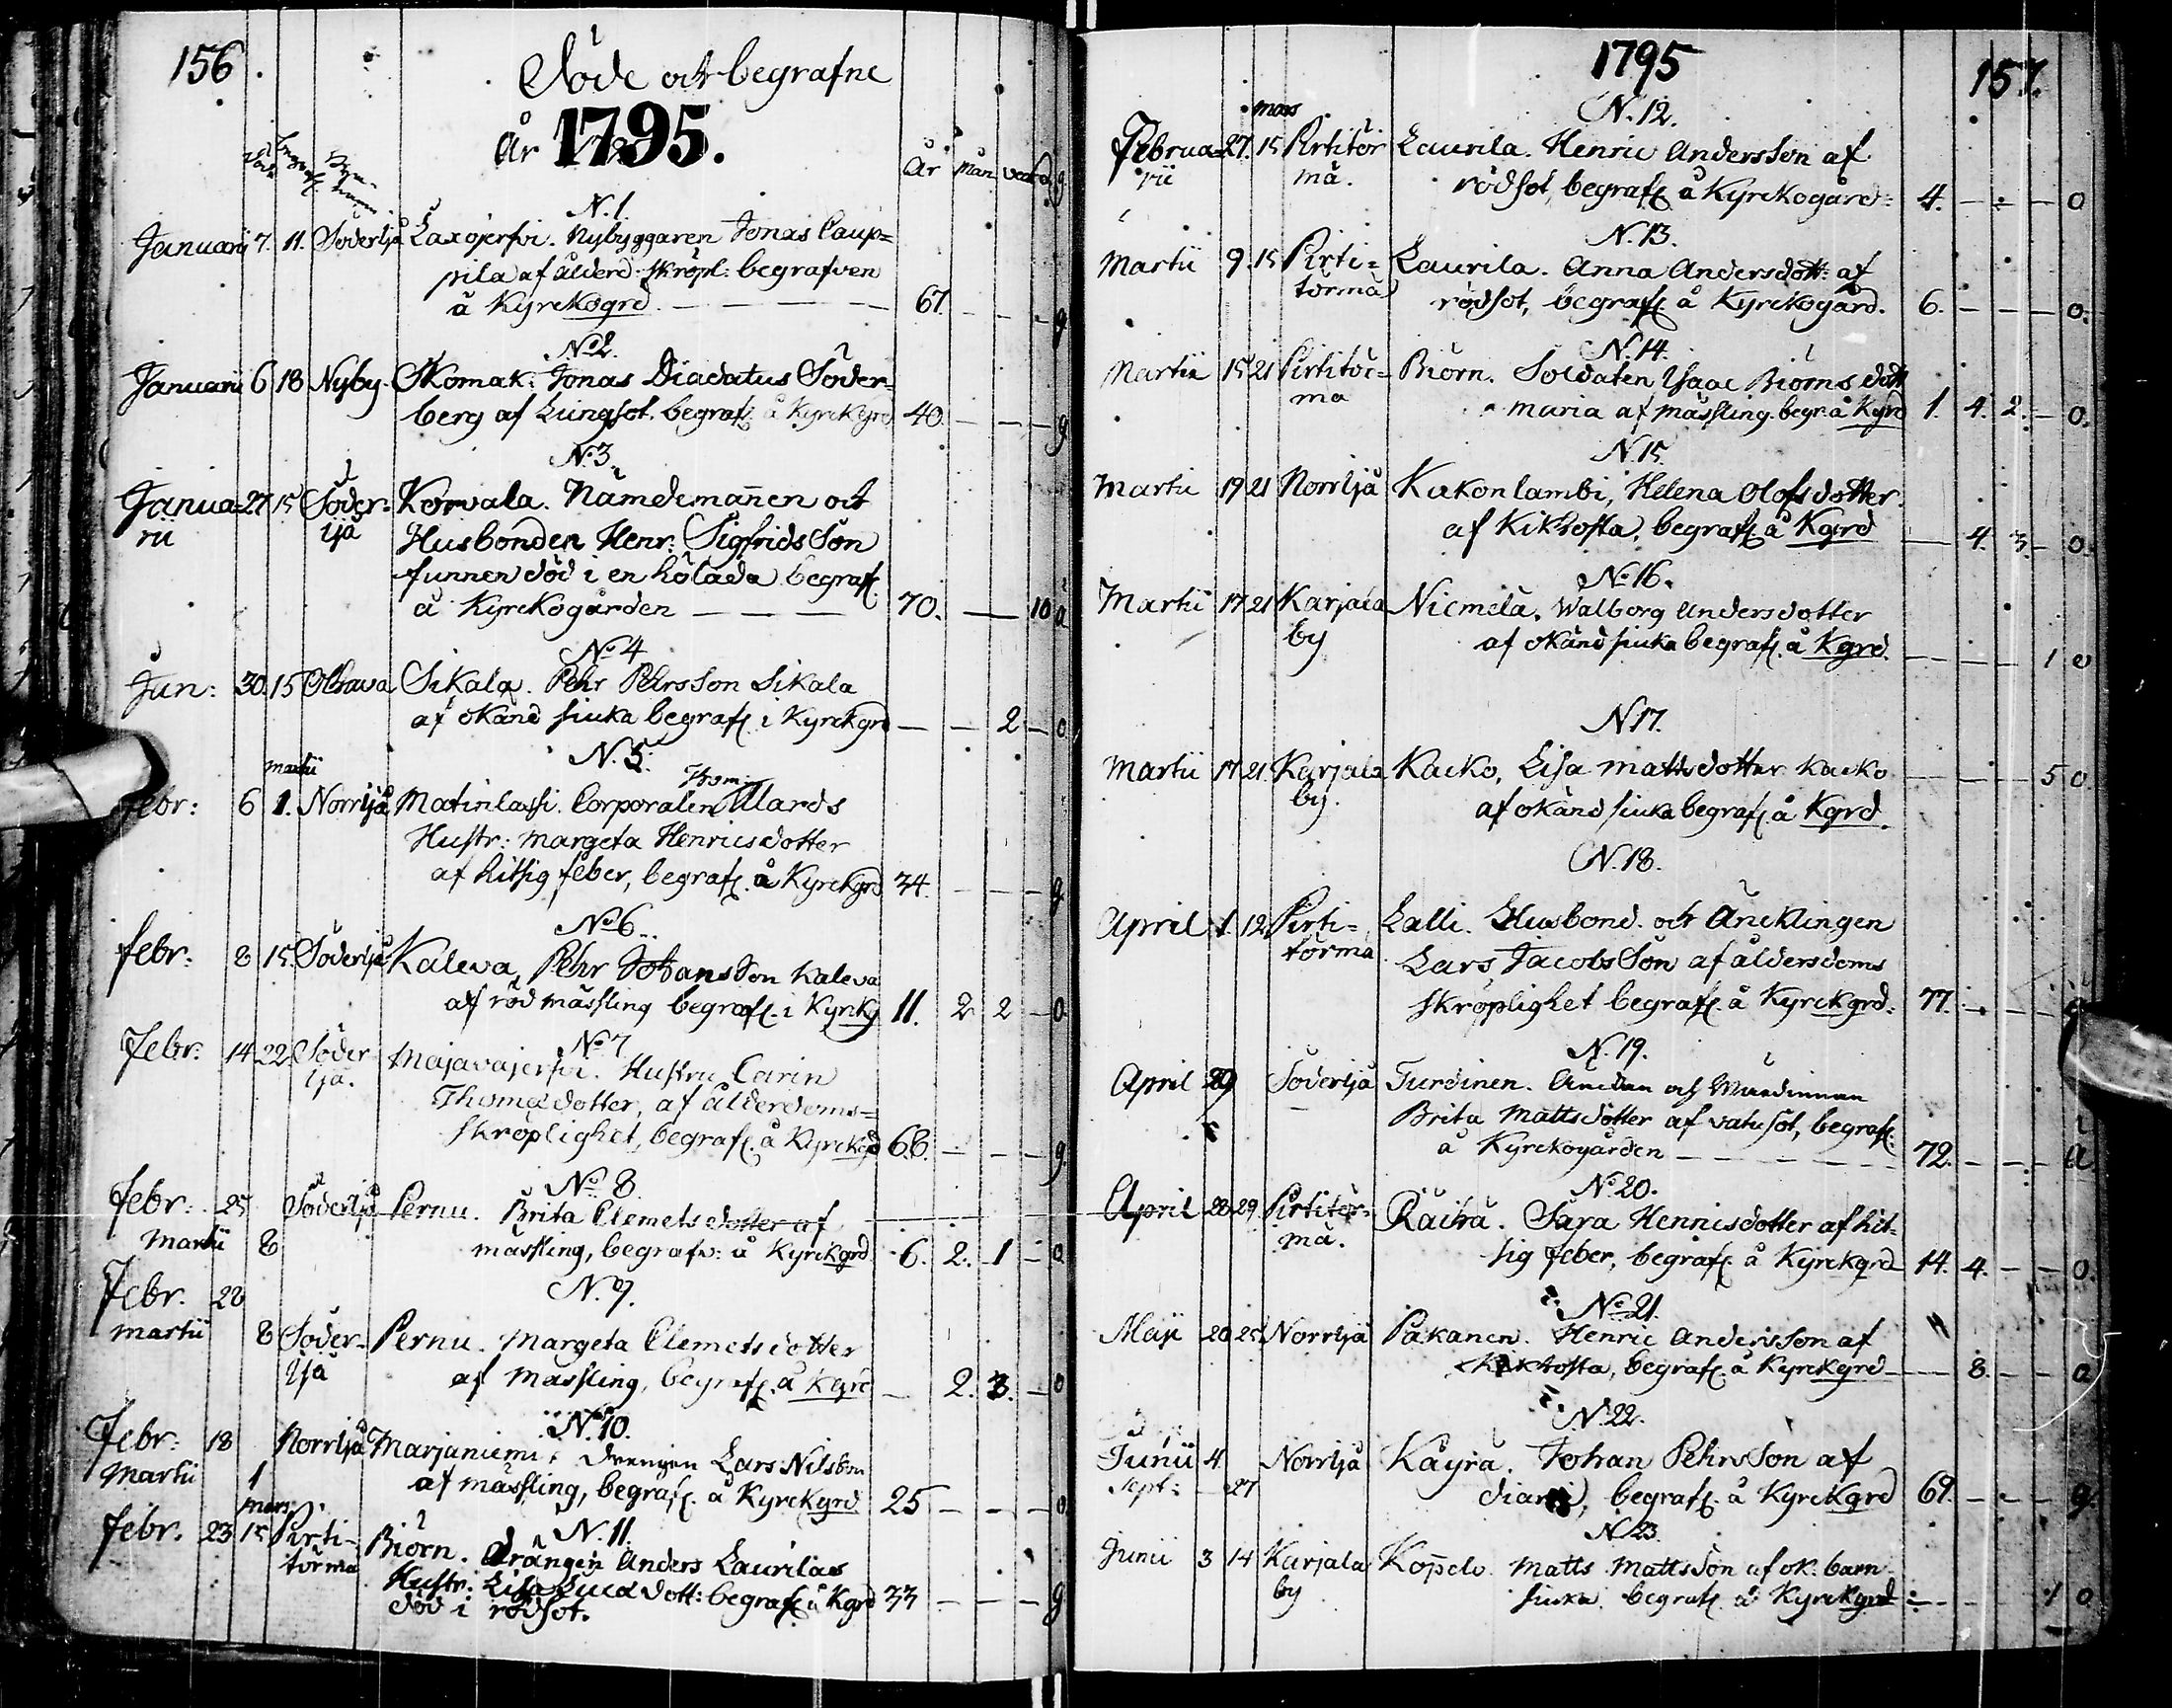 156.
Döde och begrafne
år 1795.
Död Begraf Byarnes namn
År Mån veck d g
N. 1.
Januarii 7. 11. Söderljå Laxojerfvi. Nybyggaren Jonas Caup=
pila af ålderd. skröpl: begrafven
å Kyrekogrd. — — — 67. — — — g
No 2.
Januarii 6 18 Nyby. Skomak: Jonas Diadatus Söder=
berg af Lungsot. begraf: å Kyrekgrd 40. — — — g
No 3.
Janua= 27 15 Söder= Korvala. Nämdemannen och
rii ljå Husbonden Henr: Sigfrids Son
funnen död i en hölada begraf:
å Kyrekogården — — — 70. — 10 a
No 4
Jan: 30. 15 Olhava Sikala. Pehr Pehrs Son Sikala
af okänd siuka begraf: i Kyrekgrd — — 2 — o
N. 5.
martii Thom:
febr: 6 1. Norrljå Matinlassi. Corporalen Alards
Hustr: Margeta Henricsdotter
af hitsig feber, begraf: å Kyrekgrd 34. — — — g
No 6.
febr: 8 15. Söderljå Kaleva, Pehr Johans Son Kaleva
af röd mässling begraf: i Kyrkg 11. 2 2 — o
No 7
Febr: 14 22. Söder Majavajerfvi. Hustru Carin
ljå. Thomædotter, af ålderdoms=
skröplighet, begraf: å Kyrekgd 68. — — — g.
No 8.
febr: 25 Söderljå Pernu. Brita Clemets dotter af
Martii 8 mässling, begrafv: å Kyrekgrd 6. 2. 1 — o
N. 9.
Febr. 28
martii 8 Söder= Pernu. Margeta Clemetsdotter
ljå af Massling, begraf: å Kgrd — 2. 3. — o
N. 10.
Febr: 18 Norrljå Marjaniemi, drengen Lars Nilsson
Martii 1 af mässling, begraf: å Kyrekgrd 25 — — — o
mars N. 11.
febr. 23 15 Pirti- Biörn. drängen Anders Laurilas
törmä Hustr: Lisa dott: begraf: å Kgrd 33 — — — g
död i rödsot.
1795
157.
mars N. 12.
Februa= 27. 15 Pirtitör Laurila. Henric Andersson af
rii mä. rödsot, begraf: å Kyrekogård: 4. — — — o
N. 13.
Martii 9. 15 Pirti= Laurila. Anna Andersdott: af
törmä rödsot, begraf: å Kyrekogård. 6. — — — o.
N. 14.
Martii 15 21 Pirtitör= Biörn. Soldaten Isaac Biörns dott
ma maria af mässling. begr: å Kgrd 1. 4. 2. — o.
N. 15.
Martii 19 21 Norrljå Kakonlambi, Helena Olofsdotter.
af Kikhosta, begraf: å Kgrd — 4. 3. — o.
No 16.
Martii 17 21 Karjala Niemelä. Walborg Andersdotter
by af okänd siuka begraf: å Kgrd. — — — 1 o
N 17.
Martii 17 21. Karjala Kacko, Lisa mattsdotter Kacko
by. af okänd siuka begraf: å Kgrd. — — — 5 o
N. 18.
April 1. 12 Pirti= Lalli. Husbond. och Äncklingen
törmä. Lars Jacobs Son af ålderdoms
skröplighet begraf: å Kyrekgrd. 77. — —
N. 19.
April 29 Söderljå Turdinen. Änckan och Werdinnan
Brita Mattsdotter af vatusot, begraf:
å Kyrekogården — — — 72. — — — a
No 20.
April 28 29 Pirtitör= Räihä. Sara Henricsdotter af hit=
mä. sig feber, begraf: å Kyrekgrd 14. 4. — — o.
No 21.
Maji 20 25 Norrljå Pakanen. Henric Andersson af
Kikhosta, begraf: å Kyrekgrd — 8. — — a
N. 22.
Junii 4 Norrljå Käyrä. Johan Pehrs Son af
sept: 27 diaré, begraf: å Kyrekgrd 69. — — — g
N. 23.
Junii 3 14 Karjala Koppelo. Matts Mattsson af ok. barn
by siuka. begraf: å Kyrekgrd — — — 1 o